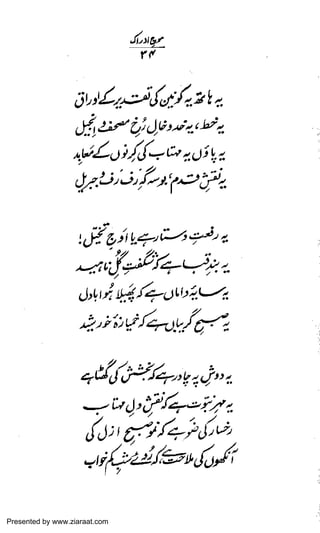 موجِ ادراک
۳۴
یہ ہاتھ یہ کونین کی تقدیر کے اوراق
یہ خط، یہ خد و خالِ رُخِ مصحف و انجیل
یہ پاؤں یہ مہتاب کی کرنوں کے معابد
یہ نقشِ قدم، بوسہ گہِ رَف رَف و جبریل
یہ رفعتِ دستار ہے یا اوجِ تخیّل!
یہ بندِ قبا ہے کہ شگفتِ گُلِ ناہید
یہ سایۂ داماں ہے کہ پھیلا ہُوا بادل
یہ صبحِ گریباں ہے کہ خمیازۂ خورشید
یہ دوش پہ چادر ہے کہ بخشش کی گھٹا ہے
یہ مہرِ نبوّت ہے کہ نقشِ دلِ مہتاب
رخسار کی ضَو ہے کہ نمو صبحِ ازل کی
آنکھوں کی ملاحت ہے کہ روئے شبِ کم خواب
Presented by www.ziaraat.com